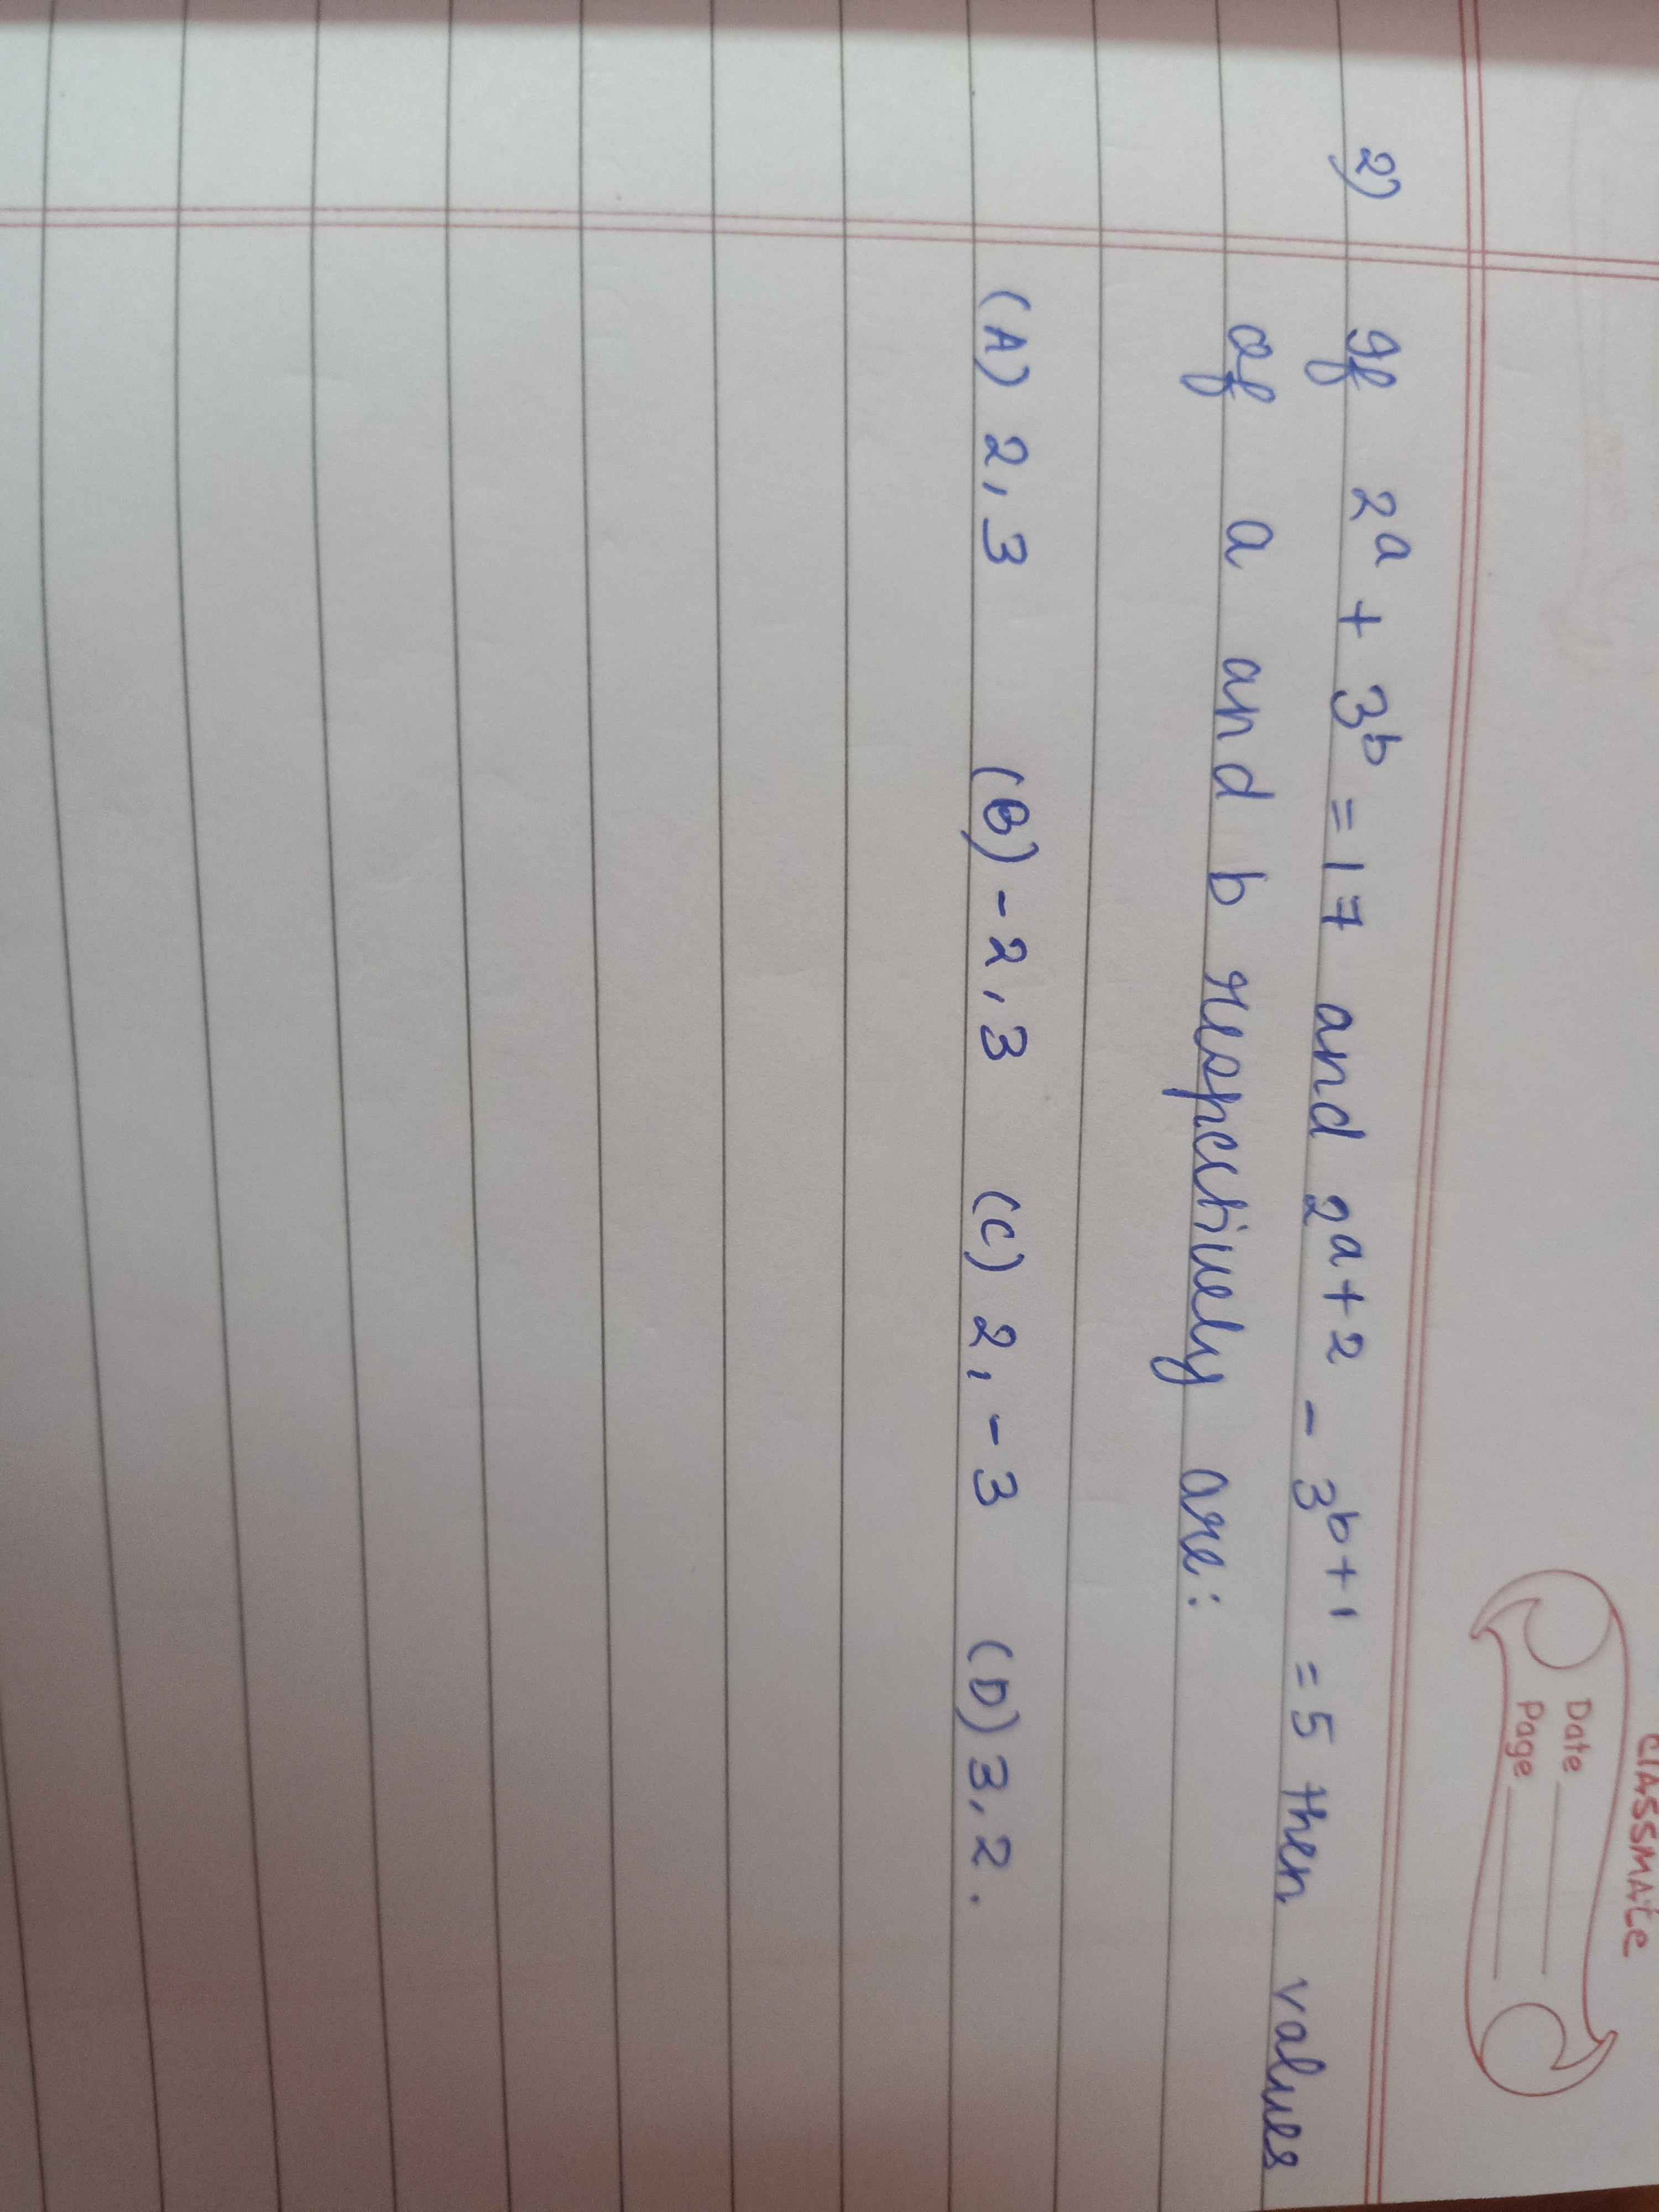 classmate
Date
Page
2) If 2ᵃ + 3ᵇ = 17 and 2ᵃ⁺² - 3ᵇ⁺¹ = 5 then values
of a and b respectively are:
(A) 2, 3 (B) -2, 3 (C) 2, -3 (D) 3, 2.